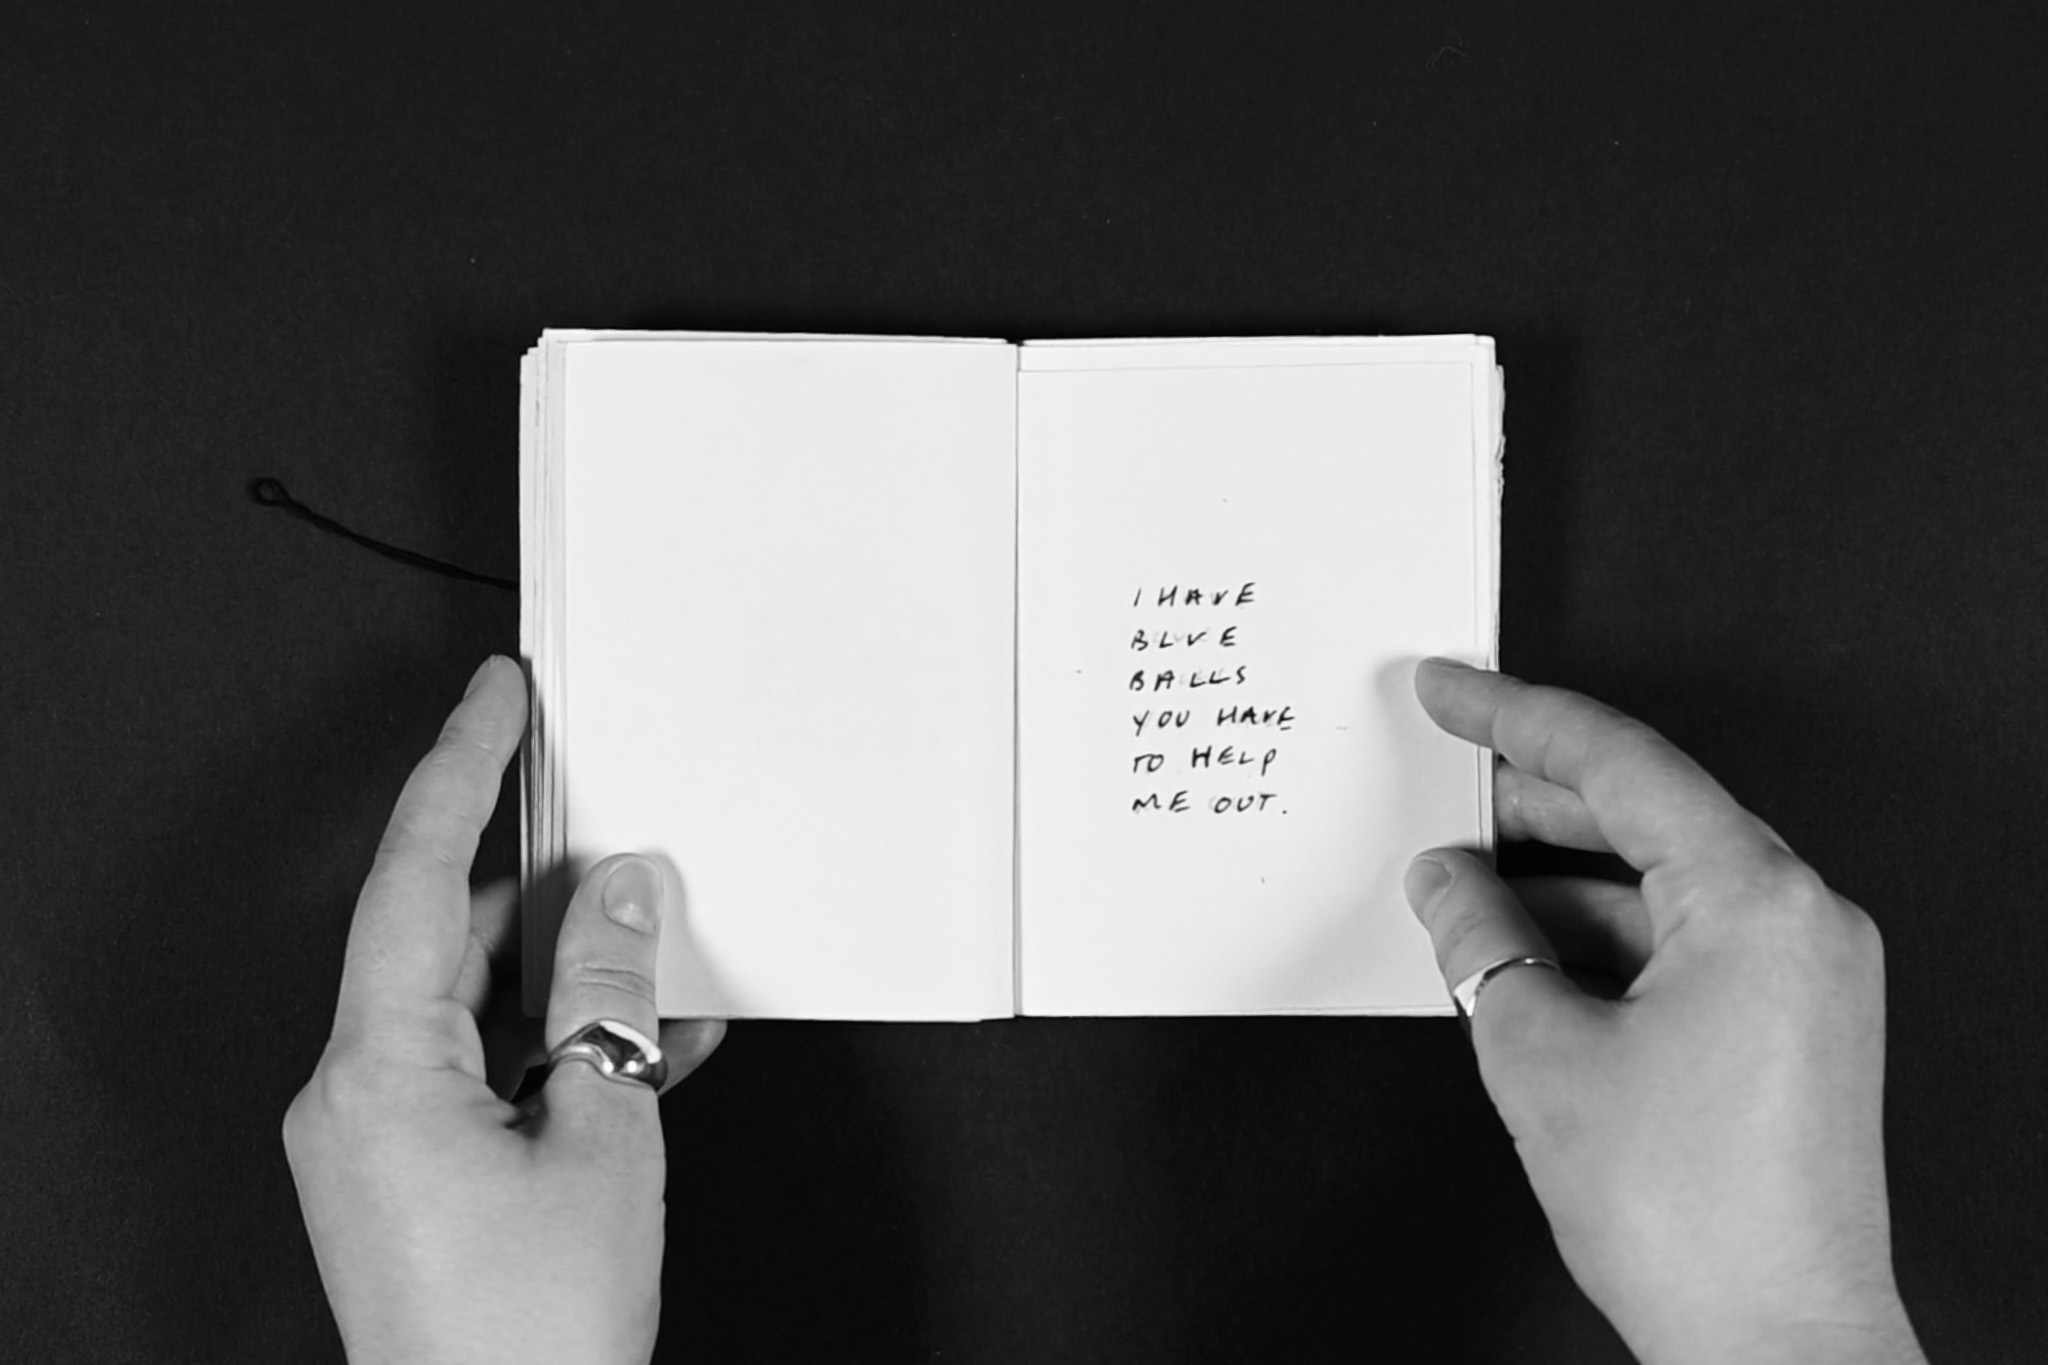 I HAVE
BLUE
BALLS
YOU HAVE
TO HELP
ME OUT.